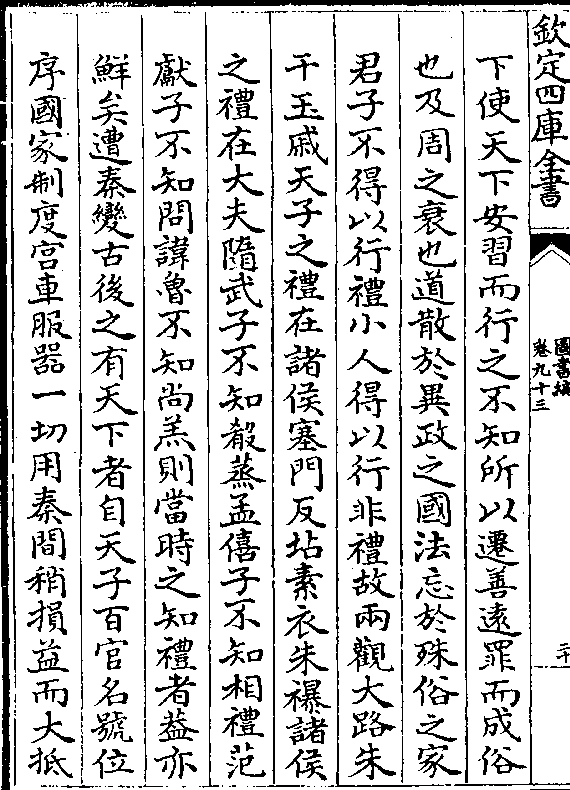 欽定四庫全書
圖書編
卷九十三
二十
下使天下安習而行之不知所以遷善遠罪而成俗
也及周之衰也道散於異政之國法忘於殊俗之家
君子不得以行禮小人得以行非禮故兩觀大路朱
干玉戚天子之禮在諸侯塞門反坫素衣朱襮諸侯
之禮在大夫隨武子不知殽蒸孟僖子不知相禮范
獻子不知問諱魯不知尚羔則當時之知禮者葢亦
鮮矣遭秦變古後之有天下者自天子百官名號位
序國家制度宫車服器一切用秦間稍損益而大抵